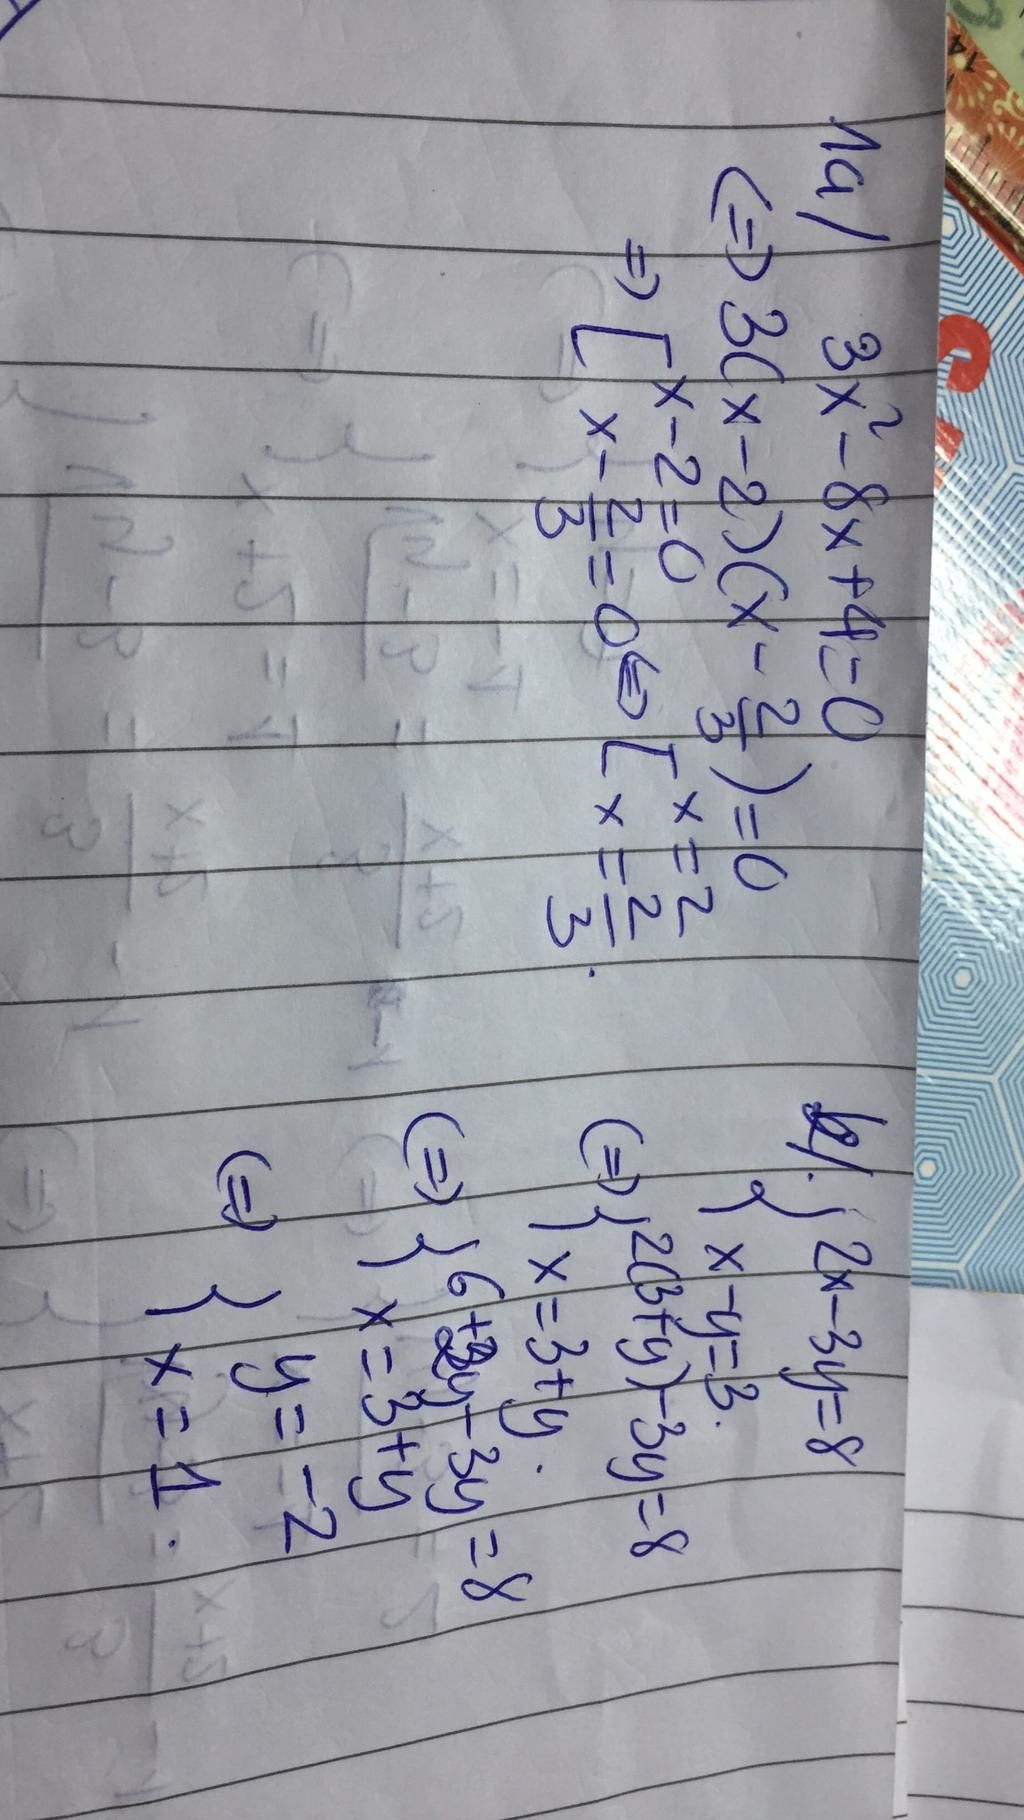 1a/ 3x² - 8x + 4 = 0
(=) 3(x - 2)(x - 2/3) = 0
=) [ x - 2 = 0
x - 2/3 = 0 (=) [ x = 2
x = 2/3.
b/. { 2x - 3y = 8
x - y = 3.
(=) { 2(3 + y) - 3y = 8
x = 3 + y.
(=) { 6 + 2y - 3y = 8
x = 3 + y
(=) { y = -2
x = 1.